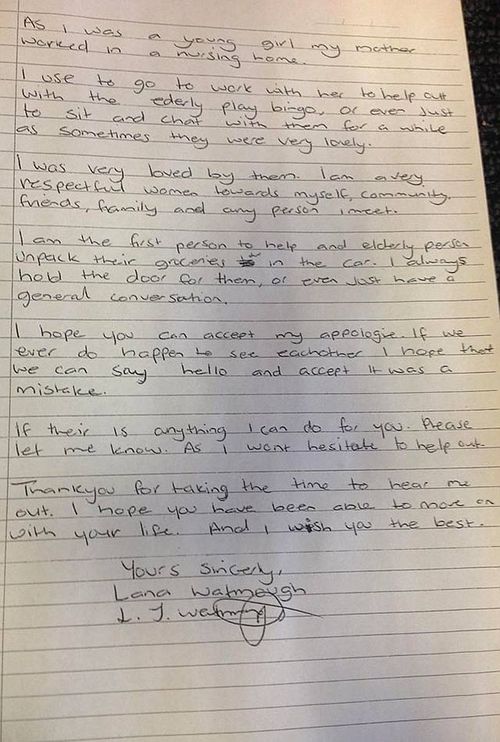 As I was a young girl my mother
worked in a nursing home.
I use to go to work with her to help out
with the ederly play bingo, or even just
to sit and chat with them for a while
as sometimes they were very lonely.
I was very loved by them. I am a very
respectful women towards myself, community,
friends, family and any person I meet.
I am the first person to help and elderly person
unpack their groceries in the car. I always
hold the door for them, or even just have a
general conversation.
I hope you can accept my appologie. If we
ever do happen to see eachother I hope that
we can say hello and accept it was a
mistake.
If their is anything I can do for you. Please
let me know. As I wont hesitate to help out.
Thankyou for taking the time to hear me
out. I hope you have been able to move on
with your life. And I wish you the best.
Yours Sincerly,
Lana Watmough
L. J.